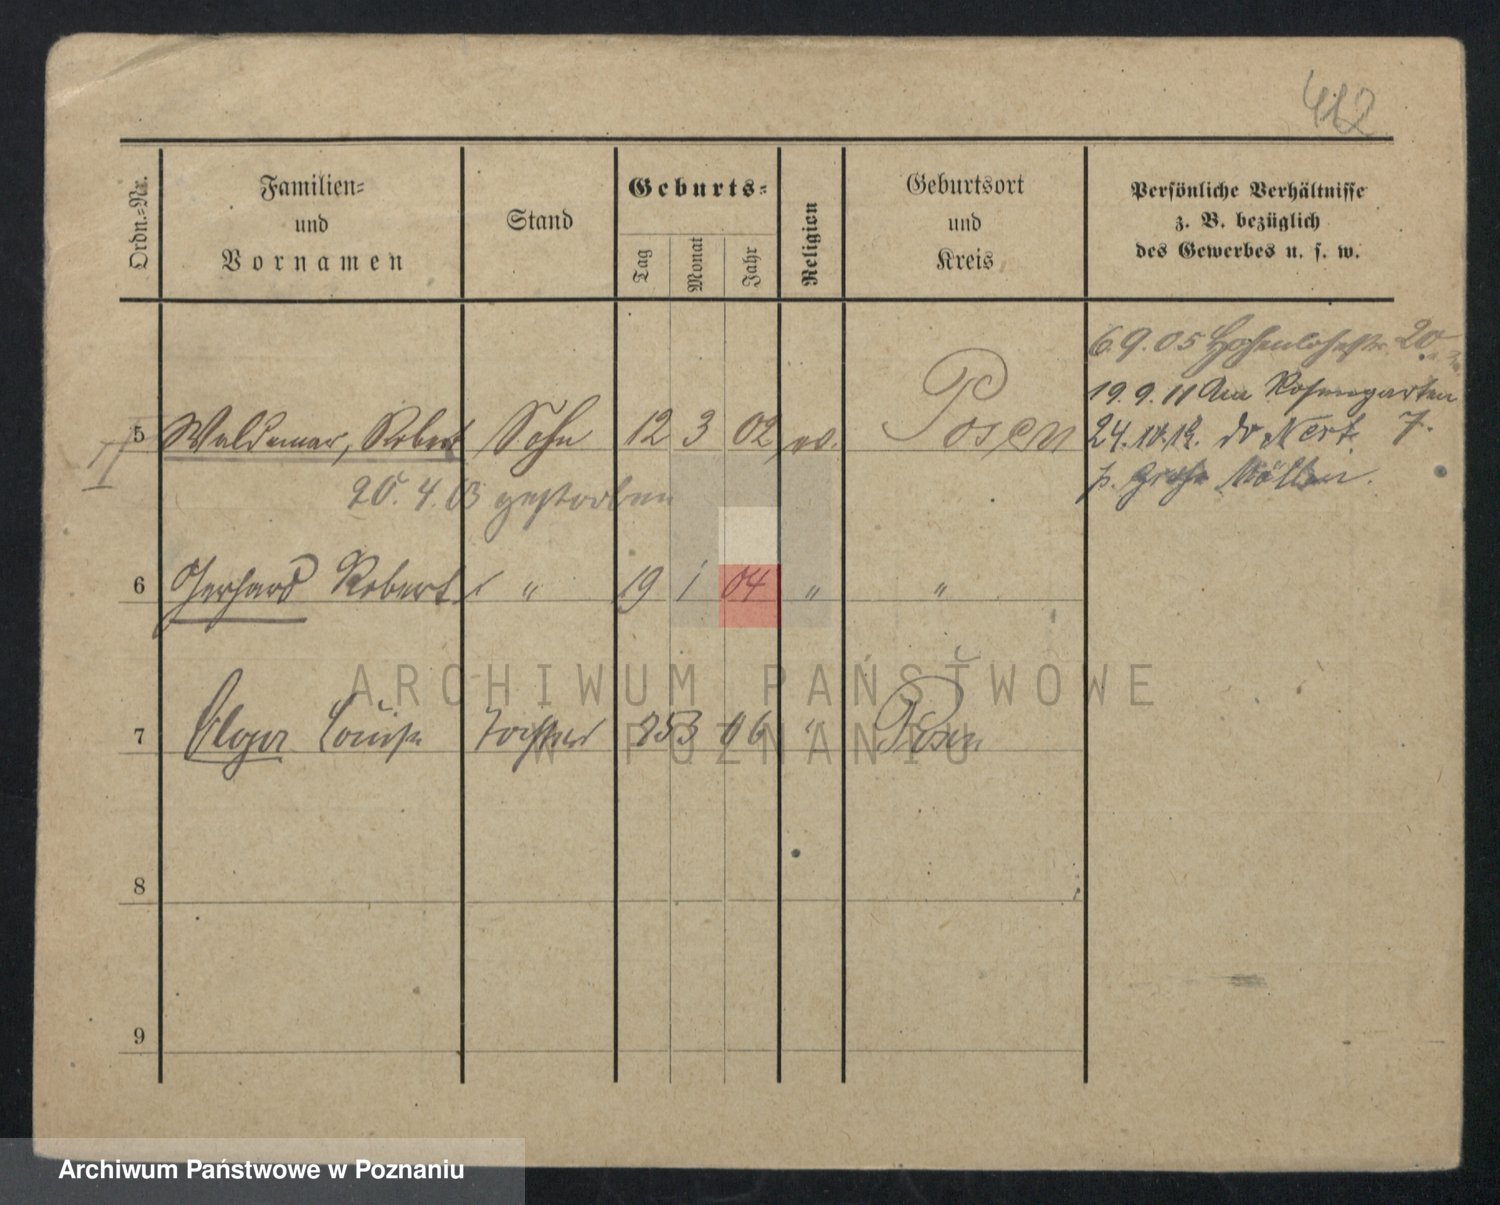 412
Ordn.=Nr.
Familien=
und
Vornamen
Stand
Geburts=
Tag
Monat
Jahr
Religion
Geburtsort
und
Kreis
Persönliche Verhältnisse
z. B. bezüglich
des Gewerbes u. s. w.
6.9.05 Hohenlohestr. 20
19.9.11 Am Rosengarten
5 Waldemar, Robert Sohn 12 3 02 ev. Posen
24. 7.
II
20.4.03 gestorben
p. Große
6 Gerhard Robert " 19 1 04 " "
7 Olga Louise Tochter 3 06 " Posen
8
9
ARCHIWUM PAŃSTWOWE
W POZNANIU
Archiwum Państwowe w Poznaniu